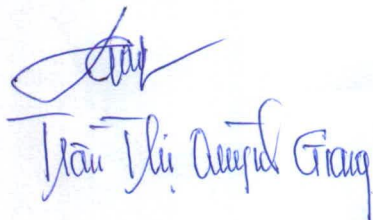 Trần Thị Quỳnh Giang